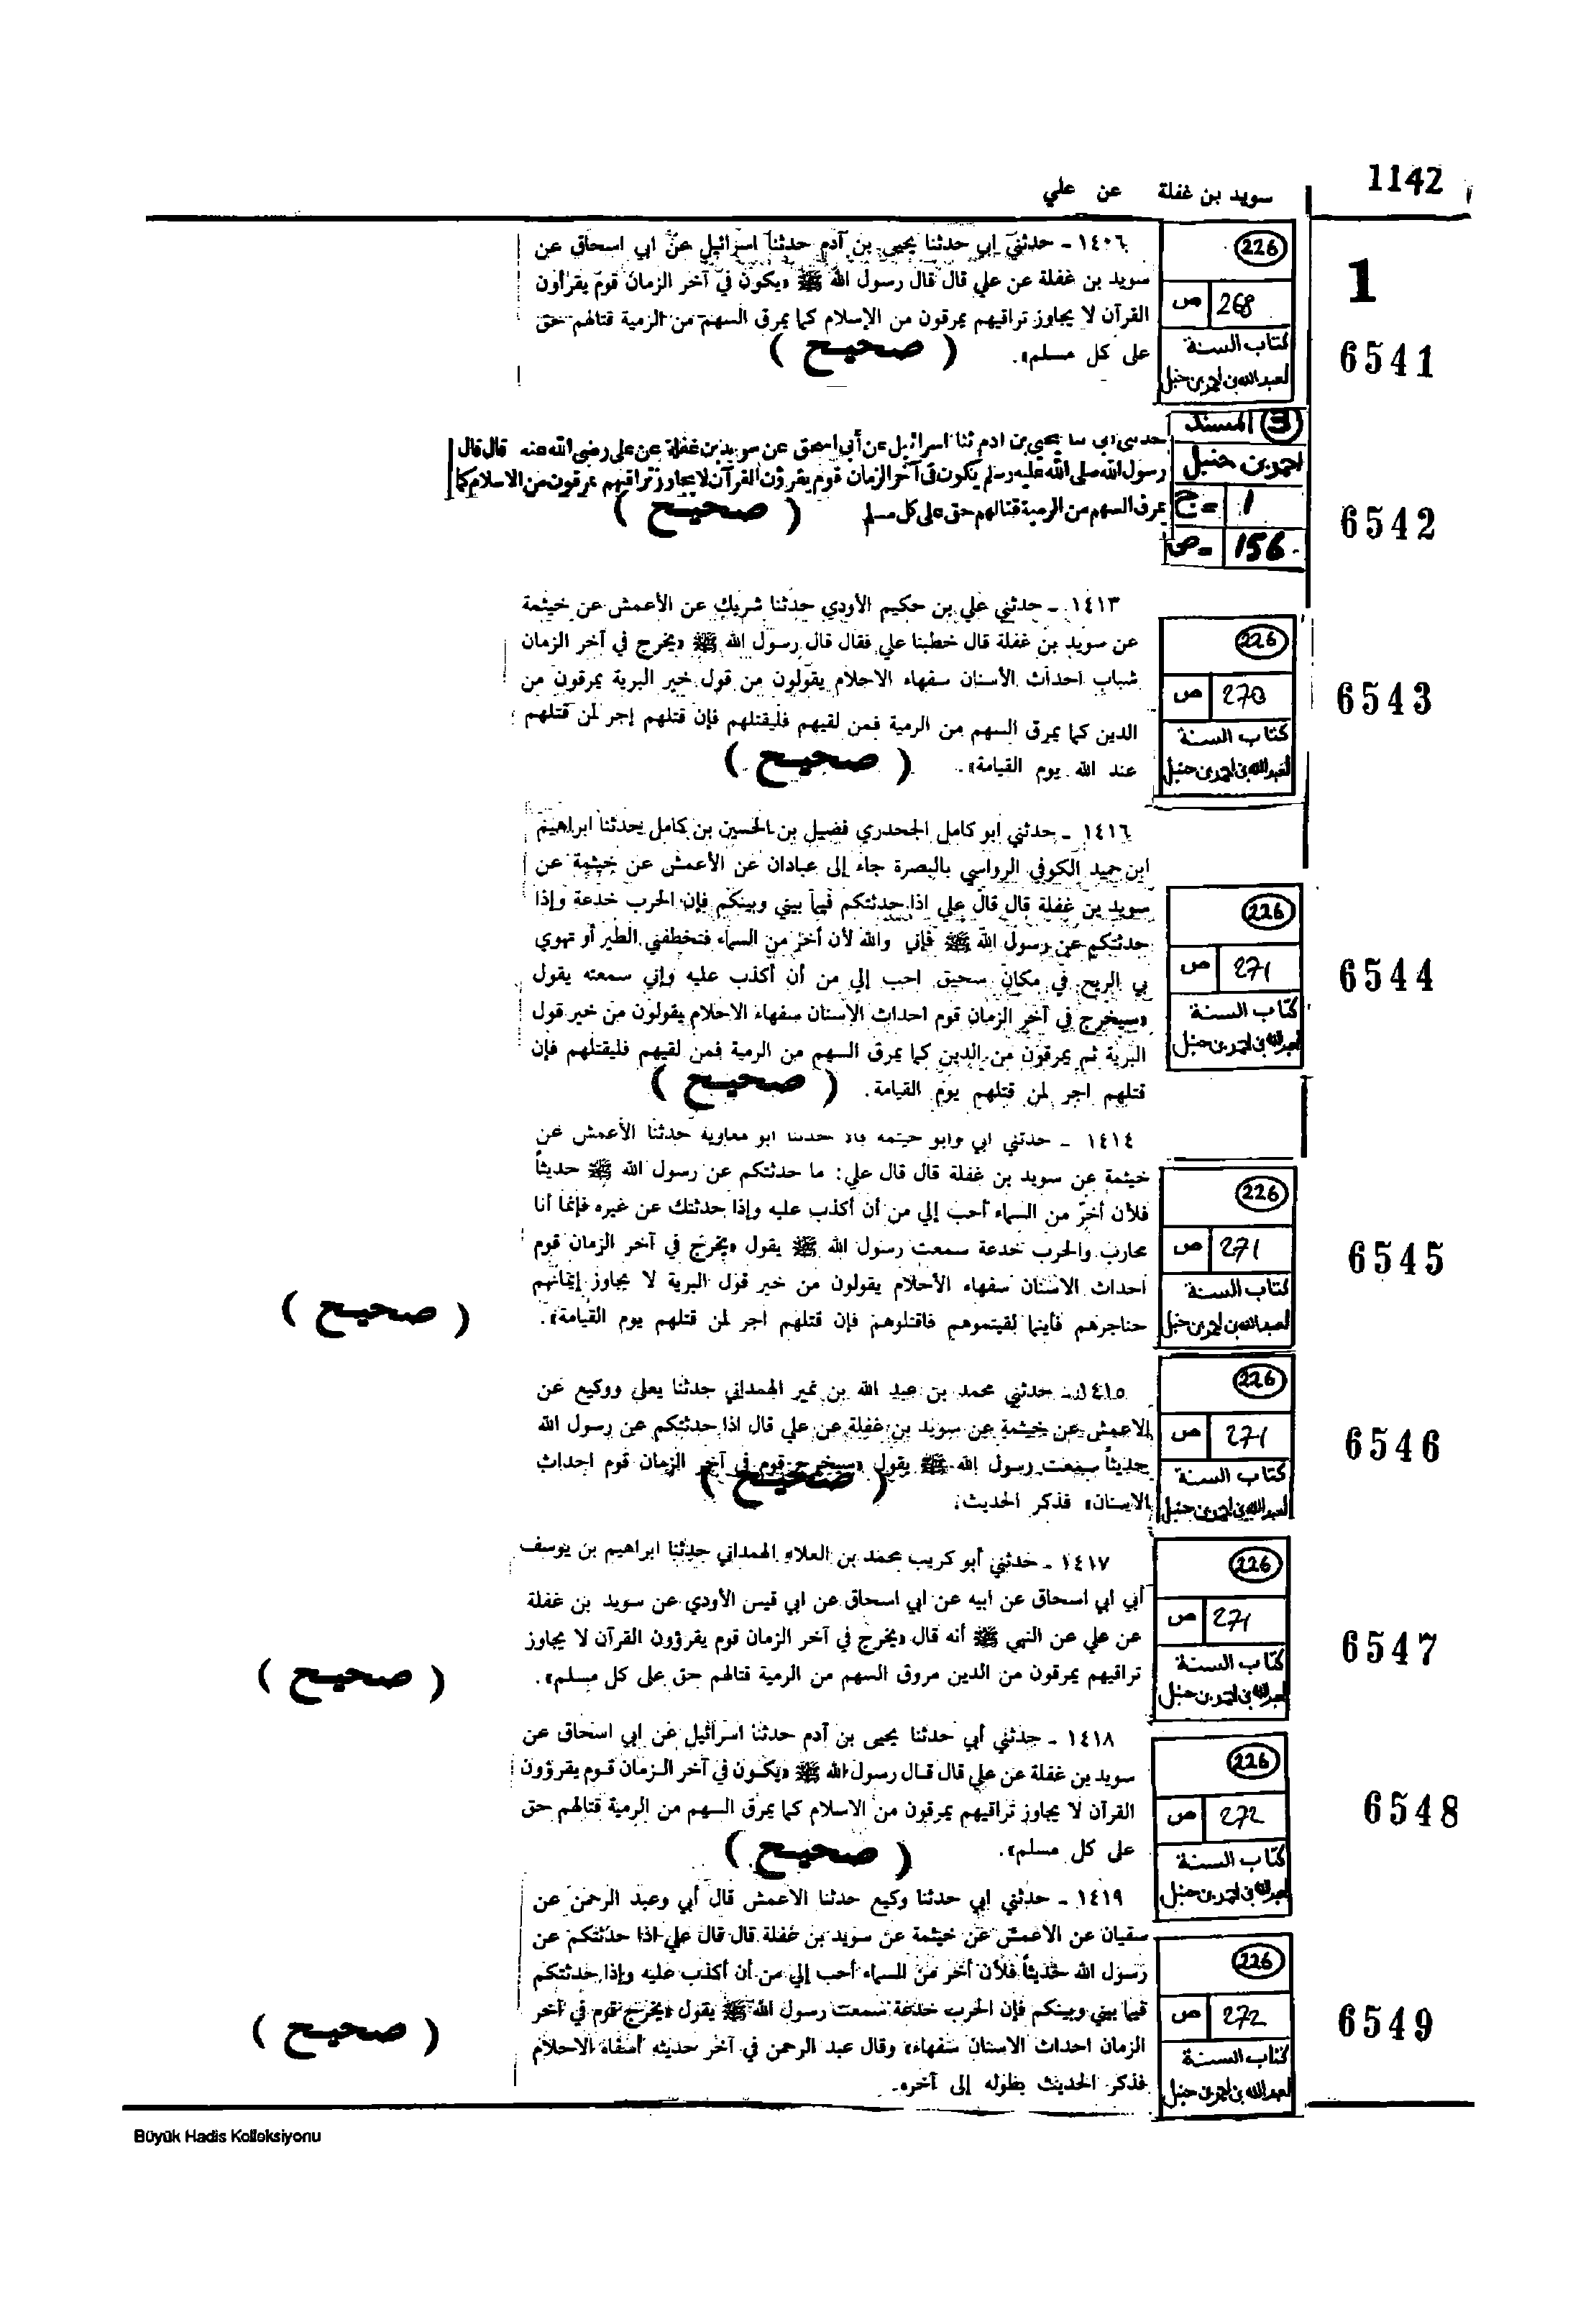 1142
سويد بن غفلة عن علي
1
226
ص 268
كتاب السنة
لعبد الله بن احمد بن حنبل
6541
١٤٠٦ - حدثني ابي حدثنا يحيى بن آدم حدثنا اسرائيل عن ابي اسحاق عن
سويد بن غفلة عن علي قال قال رسول الله ﷺ «يكون في آخر الزمان قوم يقرأون
القرآن لا يجاوز تراقيهم يمرقون من الإسلام كما يمرق السهم من الرمية قتالهم حق
على كل مسلم».
( صحيح )
3 المسند
احمد بن حنبل
ج = 1
ص = 156
6542
حدثني ابي ثنا يحيى بن ادم ثنا اسرائيل عن أبي اسحق عن سويد بن غفلة عن على رضى الله عنه قال قال
رسول الله صلى الله عليه وسلم يكون فى آخر الزمان قوم يقرؤن القرآن لا يجاوز تراقيهم يمرقون من الاسلام كما
يمرق السهم من الرمية قتالهم حق على كل مسلم
( صحيح )
226
ص 270
كتاب السنة
لعبد الله بن احمد بن حنبل
6543
١٤١٣ - حدثني علي بن حكيم الأودي حدثنا شريك عن الأعمش عن خيثمة
عن سويد بن غفلة قال خطبنا علي فقال قال رسول الله ﷺ «يخرج في آخر الزمان
شباب احداث الأسنان سفهاء الاحلام يقولون من قول خير البرية يمرقون من
الدين كما يمرق السهم من الرمية فمن لقيهم فليقتلهم فإن قتلهم إجر لمن قتلهم
عند الله يوم القيامة».
( صحيح )
226
ص 271
كتاب السنة
لعبد الله بن احمد بن حنبل
6544
١٤١٦ - حدثني ابو كامل الجحدري فضيل بن الحسين بن كامل يحدثنا ابراهيم
ابن حميد الكوفي الرواسي بالبصرة جاء إلى عبادان عن الأعمش عن خيثمة عن
سويد بن غفلة قال قال علي اذا حدثتكم فيما بيني وبينكم فإن الحرب خدعة وإذا
حدثتكم عن رسول الله ﷺ فإني والله لأن أخر من السماء فتخطفني الطير أو تهوي
بي الريح في مكان سحيق احب إلي من أن أكذب عليه وإني سمعته يقول
«سيخرج في آخر الزمان قوم احداث الإسنان سفهاء الاحلام يقولون من خير قول
البرية ثم يمرقون من الدين كما يمرق السهم من الرمية فمن لقيهم فليقتلهم فإن
قتلهم اجر لمن قتلهم يوم القيامة.
( صحيح )
226
ص 271
كتاب السنة
لعبد الله بن احمد بن حنبل
6545
١٤١٤ - حدثني ابي وابو خيثمة قالا حدثنا ابو معاوية حدثنا الأعمش عن
خيثمة عن سويد بن غفلة قال قال علي: ما حدثتكم عن رسول الله ﷺ حديثاً
فلأن أخرّ من السماء أحب إلي من أن أكذب عليه وإذا حدثتك عن غيره فإنما أنا
محارب والحرب خدعة سمعت رسول الله ﷺ يقول «يخرج في آخر الزمان قوم
أحداث الاسنان سفهاء الأحلام يقولون من خير قول البرية لا يجاوز إيمانهم
حناجرهم فأينما لقيتموهم فاقتلوهم فإن قتلهم اجر لمن قتلهم يوم القيامة».
( صحيح )
226
ص 271
كتاب السنة
لعبد الله بن احمد بن حنبل
6546
١٤١٥ - حدثني محمد بن عبد الله بن نمير الهمداني حدثنا يعلى ووكيع عن
الاعمش عن خيثمة عن سويد بن غفلة عن علي قال اذا حدثتكم عن رسول الله
حديثاً سمعت رسول الله ﷺ يقول «سيخرج قوم في آخر الزمان قوم احداث
الاسنان» فذكر الحديث.
( صحيح )
226
ص 271
كتاب السنة
لعبد الله بن احمد بن حنبل
6547
١٤١٧ - حدثني أبو كريب محمد بن العلاء الهمداني حدثنا ابراهيم بن يوسف
أبي ابي اسحاق عن ابيه عن ابي اسحاق عن ابي قيس الأودي عن سويد بن غفلة
عن علي عن النبي ﷺ أنه قال «يخرج في آخر الزمان قوم يقرؤون القرآن لا يجاوز
تراقيهم يمرقون من الدين مروق السهم من الرمية قتالهم حق على كل مسلم».
( صحيح )
226
ص 272
كتاب السنة
لعبد الله بن احمد بن حنبل
6548
١٤١٨ - حدثني أبي حدثنا يحيى بن آدم حدثنا اسرائيل عن ابي اسحاق عن
سويد بن غفلة عن علي قال قال رسول الله ﷺ «يكون في آخر الزمان قوم يقرؤون
القرآن لا يجاوز تراقيهم يمرقون من الاسلام كما يمرق السهم من الرمية قتالهم حق
على كل مسلم».
( صحيح )
226
ص 272
كتاب السنة
لعبد الله بن احمد بن حنبل
6549
١٤١٩ - حدثني ابي حدثنا وكيع حدثنا الاعمش قال أبي وعبد الرحمن عن
سفيان عن الأعمش عن خيثمة عن سويد بن غفلة قال قال علي اذا حدثتكم عن
رسول الله حديثاً فلأن أخر من السماء أحب إلي من أن أكذب عليه وإذا حدثتكم
فيما بيني وبينكم فإن الحرب خدعة سمعت رسول الله ﷺ يقول «يخرج قوم في آخر
الزمان احداث الاسنان سفهاء» وقال عبد الرحمن في آخر حديثه أسفاه الاحلام
فذكر الحديث بطوله إلى آخره.
( صحيح )
Büyük Hadis Kolleksiyonu